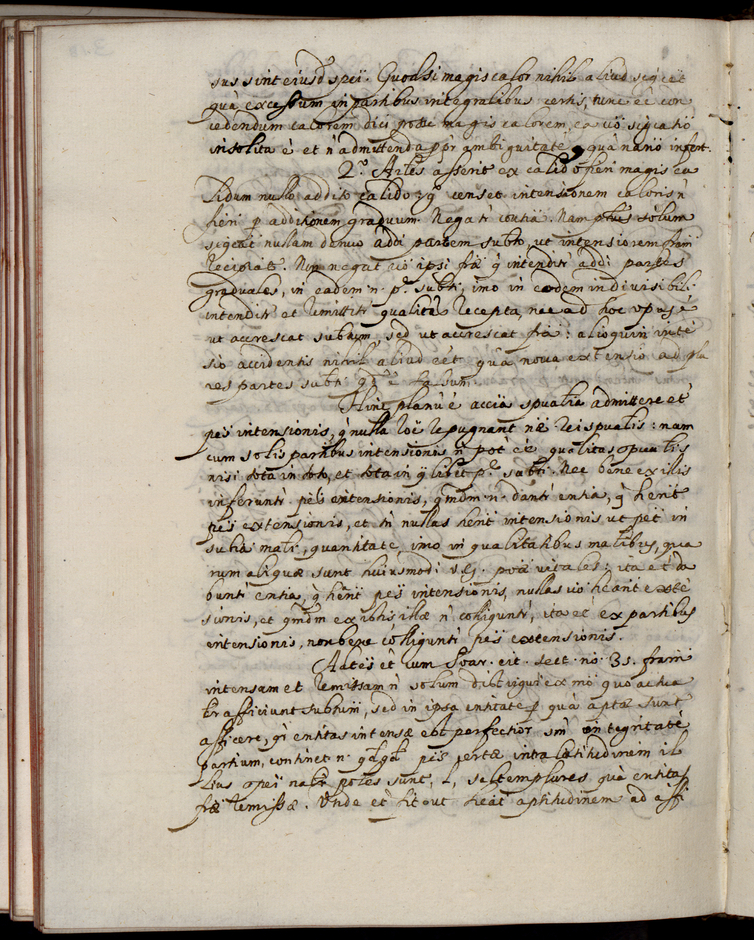 sus sint eiusd. speī. Quodsi magis calor nihil aliud sigcēt
quā excessum in partibus integralibus certis, tunc eē con
cedendum calorem dici posse magis calorem, ea vō sigcatiō
insolita ē et n̄ admittenda ppr̄ ambiguitatē, quā nariō infert.
2.º Artēs asserit ex calido fieri magis ca
lidum nullo addito calido; gº censet intensionem caloris n̄
fieri p additionem graduum. Negatr contiā. Nam phūs solum
sigcat nullam denuo addi partem subto, ut intensiorem frām
recipiat. Non negat vō ipsi frā q̄ intenditr addi partes
graduales, in eadem n. pē subti, imo in eodem indivisibili
intenditr et remittitr qualitas recepta, nec ad hoc opus ē
ut accrescat subtum, sed ut accrescat frā: alioquin intē
sio accidentis nihil aliud eēt quā nova extensio ad plu
res partes subti qd ē falsum.
Hinc planū ē accīā spualia admittere et
peīs intensionis, q̄ nulla roē repugnant nē rei spualis: nam
cum solis partibus intensionis n̄ pot eē qualitas spualis
nisi tota in toto, et tota in qlibet pē subti. Nec bene ex illis
inferuntr peīs extensionis, qmdm n. dantr entia, q̄ herit
peīs extensionis, et tn̄ nullas herit intensionis ut peīt in
subīa matī, quantitate, imo in qualitatibus matibus, qua
rum aliquæ sunt huiusmodi v.g. poæ vitales: ita et da
buntr entia, q̄ hent peīs intensionis, nullas vō heant extē
sionis, et qmdm ex istis illæ n̄ colligunt, ita et ex partibus
intensionis, non bene colliguntr peīs extensionis.
Adteīs ēt cum Soar. cit. sect. nō 31. fram
intensam et remissam n̄ solum distingui ex mō quo actua
lr afficiunt subtum, sed in ipsa entitate p quā aptæ sunt
afficere, qī entitas intensæ est perfectior sm̄ integritatē
partium, continet n. qdqd peīs certæ intra latitudinem il
lius speī natr poles sunt, l, saltem plures quā entitas
fræ remissæ. Unde et fit out heat aptitudinem ad affi